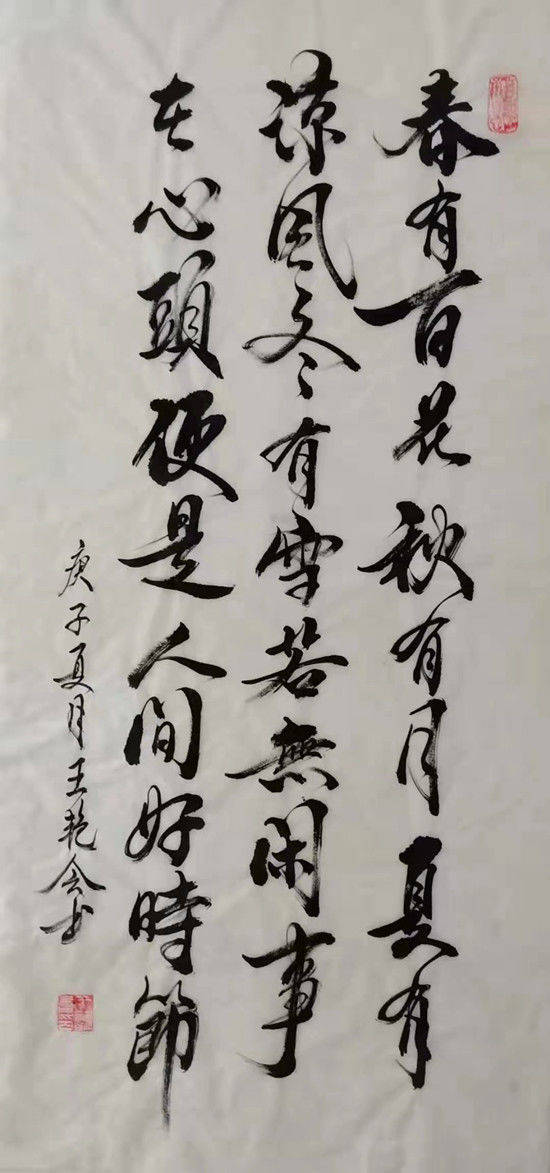 春有百花秋有月夏有
涼風冬有雪若無閑事
在心頭便是人間好時節
庚子夏月王艳会书